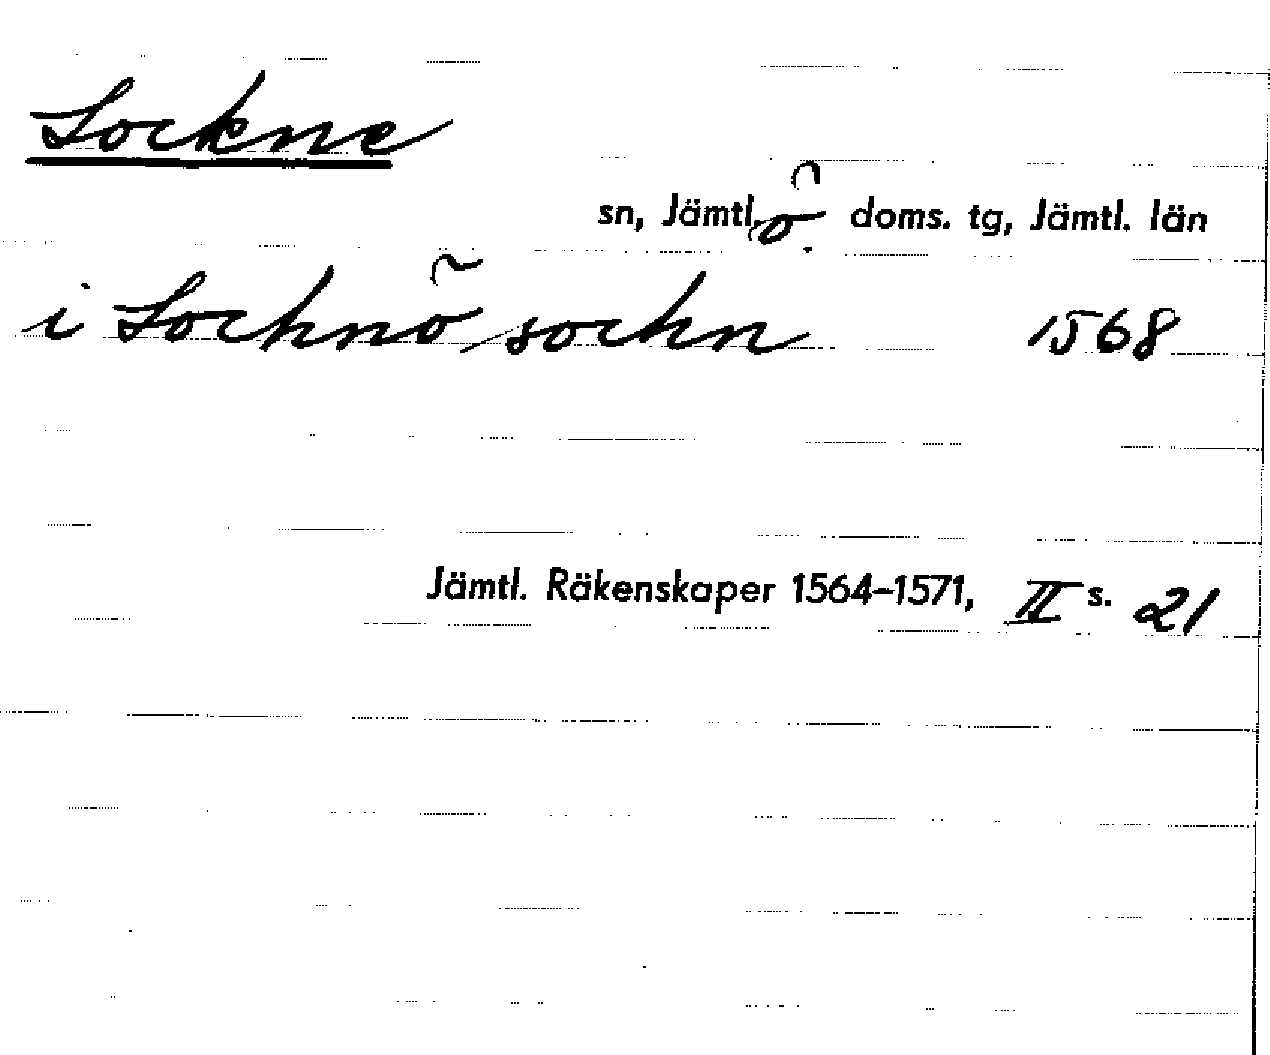 Lockne
sn, Jämtl. ö. doms. tg, Jämtl. län
i Lochnö sochn 1568
Jämtl. Räkenskaper 1564–1571, II s. 21